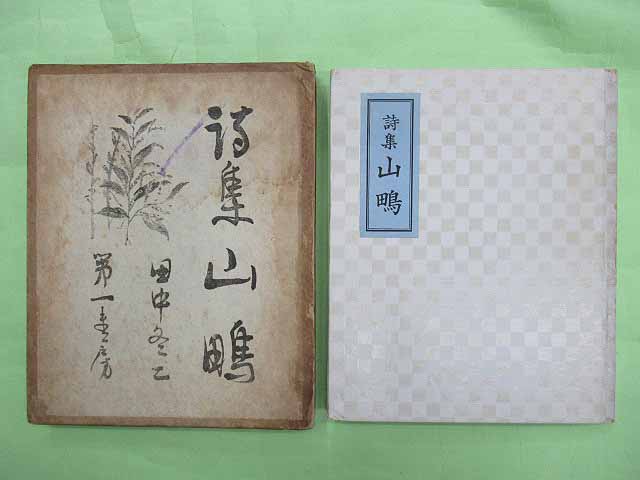 詩集山鴫
田中冬二
第一書房
詩集
山鴫